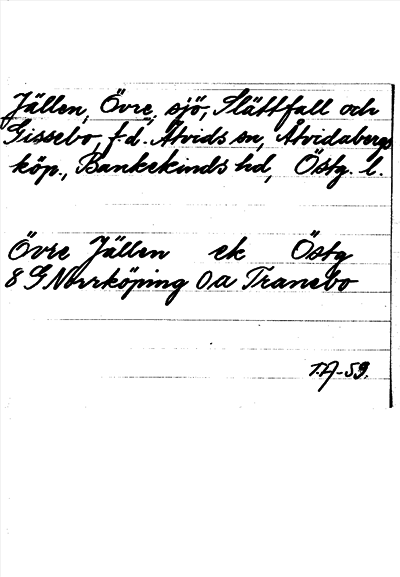 Jällen, Övre, sjö, Slättfall och
Gissebo, f.d. Åtvids sn, Åtvidabergs
köp., Bankekinds hd, Östg. l.
Övre Jällen ek Östg
8 G Norrköping Oa Tranebo
-59.